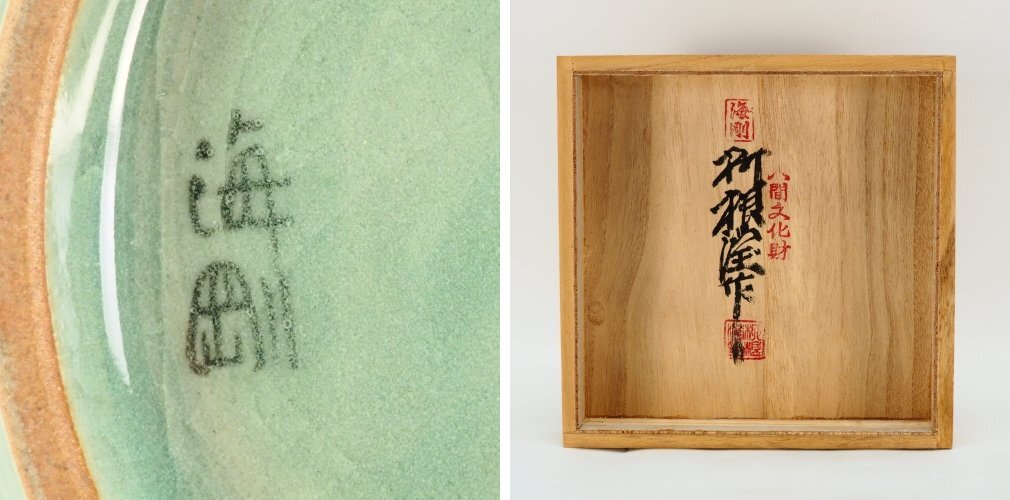 海剛
海剛
柳根瀅作
人間文化財